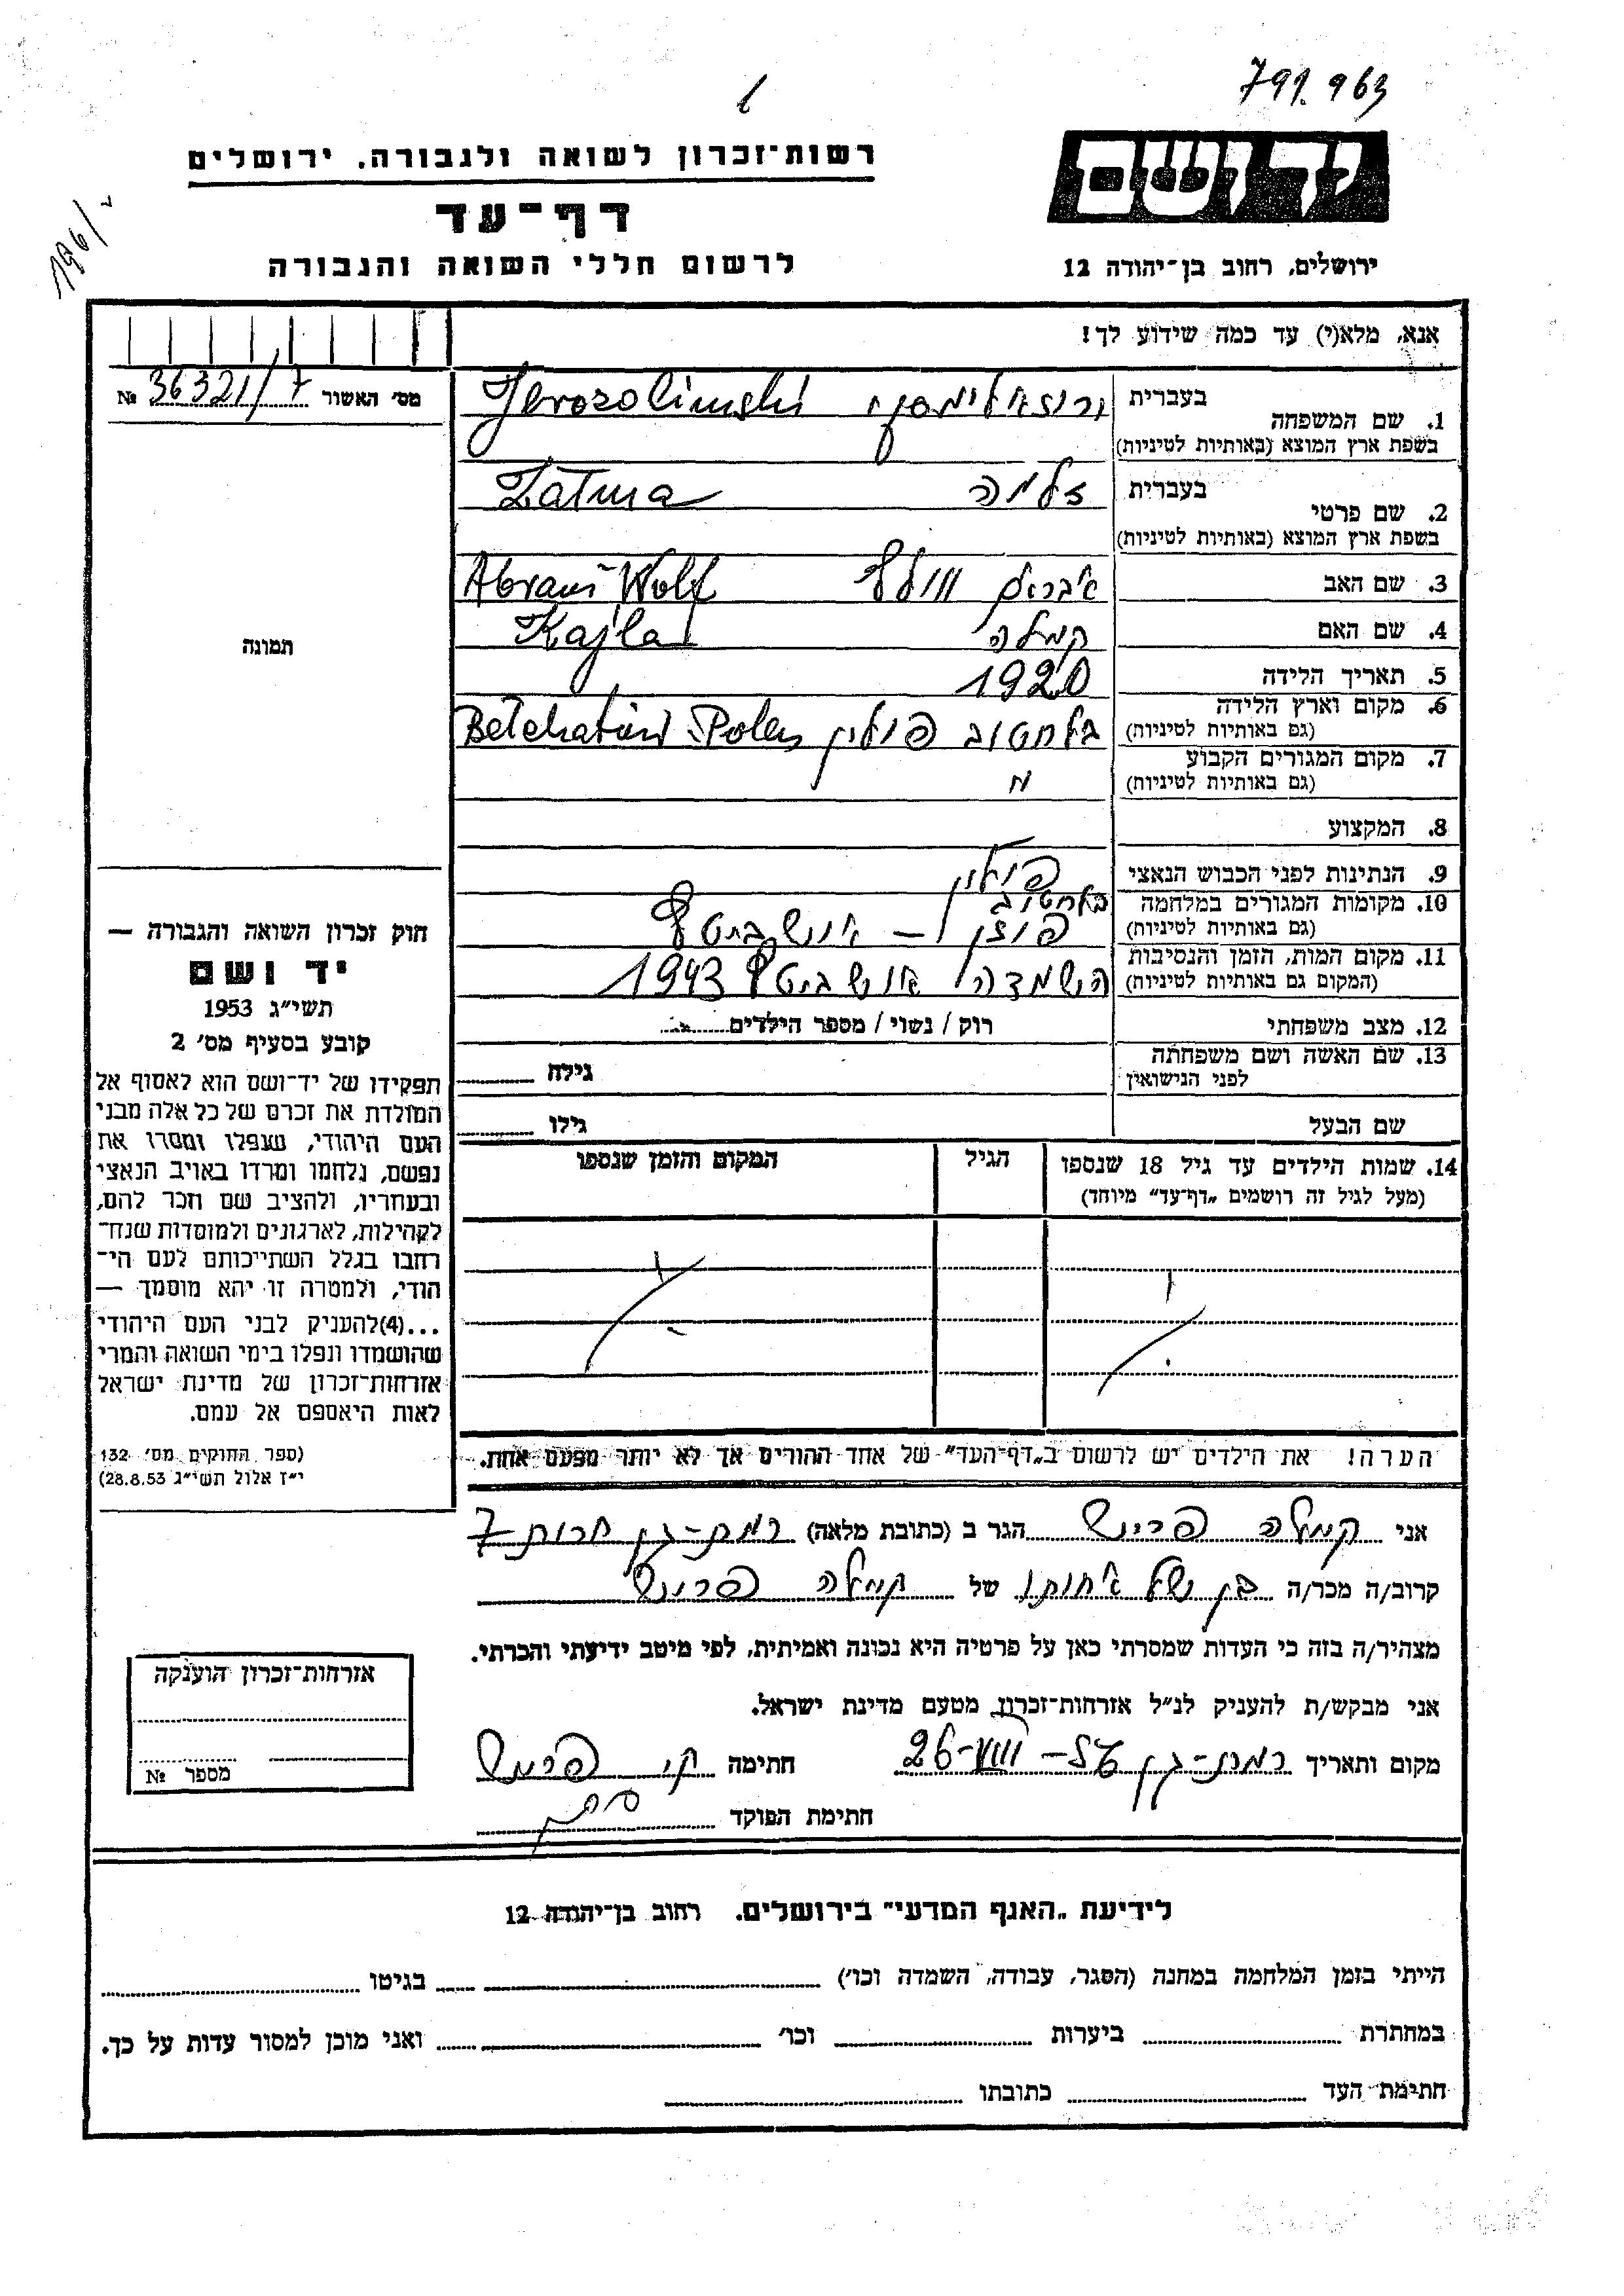 791.963
רשות־זכרון לשואה ולגבורה. ירושלים
יד ושם
דף־עד
196/
לרשום חללי השואה והגבורה
ירושלים, רחוב בן־יהודה 12
אנא, מלא(י) עד כמה שידוע לך!
מס׳ האשור № 36321/7
1. שם המשפחה בעברית
בשפת ארץ המוצא (באותיות לטיניות)
Jerozolimski
2. שם פרטי בעברית זלמה
בשפת ארץ המוצא (באותיות לטיניות)
3. שם האב Abram Wolf
4. שם האם Kajla
5. תאריך הלידה 1920
6. מקום וארץ הלידה
(גם באותיות לטיניות) בלחטוב פולין Polen
7. מקום המגורים הקבוע
(גם באותיות לטיניות)
8. המקצוע
9. הנתינות לפני הכבוש הנאצי פולין
10. מקומות המגורים במלחמה בלחטוב
(גם באותיות לטיניות) פוזן –
11. מקום המות, הזמן והנסיבות
(המקום גם באותיות לטיניות) השמדה 1943
12. מצב משפחתי רוק / נשוי / מספר הילדים
13. שם האשה ושם משפחתה
לפני הנישואין גילה
שם הבעל גילו
14. שמות הילדים עד גיל 18 שנספו הגיל המקום והזמן שנספו
(מעל לגיל זה רושמים „דף־עד״ מיוחד)
תמונה
חוק זכרון השואה והגבורה —
יד ושם
תשי״ג 1953
קובע בסעיף מס׳ 2
תפקידו של יד־ושם הוא לאסוף אל
המולדת את זכרם של כל אלה מבני
העם היהודי, שנפלו ומסרו את
נפשם, נלחמו ומרדו באויב הנאצי
ובעוזריו, ולהציב שם וזכר להם,
לקהילות, לארגונים ולמוסדות שנח־
רבו בגלל השתייכותם לעם הי־
הודי, ולמטרה זו יהא מוסמך —
...(4)להעניק לבני העם היהודי
שהושמדו ונפלו בימי השואה והמרי
אזרחות־זכרון של מדינת ישראל
לאות היאספם אל עמם.
(ספר החוקים מס׳ 132
י״ז אלול תשי״ג 28.8.53)
הערה! את הילדים יש לרשום ב„דף־העד״ של אחד ההורים אך לא יותר מפעם אחת.
אני הגר ב (כתובת מלאה) רמת-גן חרות 7
קרוב/ה מכר/ה של
מצהיר/ה בזה כי העדות שמסרתי כאן על פרטיה היא נכונה ואמיתית, לפי מיטב ידיעתי והכרתי.
אני מבקש/ת להעניק לנ״ל אזרחות־זכרון מטעם מדינת ישראל.
מקום ותאריך רמת-גן חתימה
חתימת הפוקד
אזרחות־זכרון הוענקה
מספר №
לידיעת „האגף המדעי״ בירושלים. רחוב בן־יהודה 12
הייתי בזמן המלחמה במחנה (הסגר, עבודה, השמדה וכו׳) בגיטו
במחתרת ביערות וכו׳ ואני מוכן למסור עדות על כך.
חתימת העד כתובתו